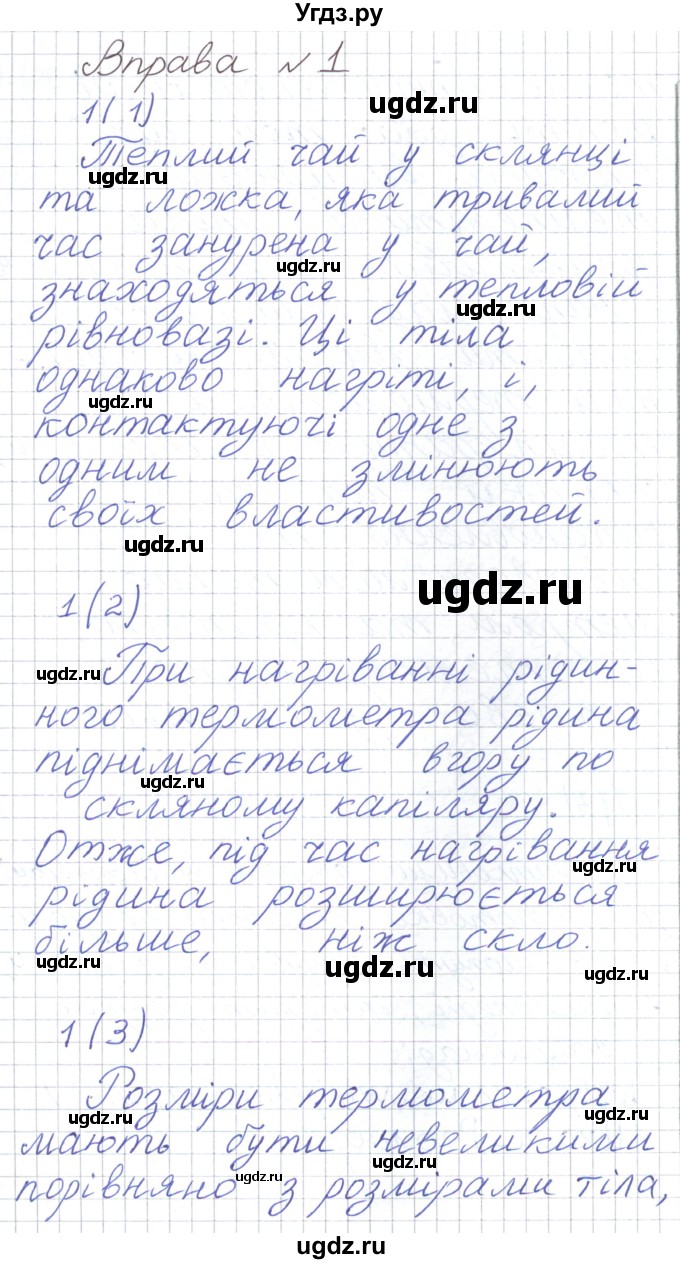 Угдз.ру
Вправа №1
ugdz.ru
1(1)
Теплий чай у склянці
ugdz.ru
та ложка, яка тривалий
час занурена у чай,
ugdz.ru
знаходяться у тепловій
ugdz.ru
рівновазі. Ці тіла
однаково нагріті, і,
ugdz.ru
контактуючі одне з
одним не змінюють
своїх властивостей.
ugdz.ru
1(2)
ugdz.ru
ugdz.ru
При нагріванні рідин-
ного термометра рідина
піднімається вгору по
ugdz.ru
скляному капіляру.
Отже, під час нагрівання
ugdz.ru
рідина розширюється
більше, ніж скло.
ugdz.ru
ugdz.ru
ugdz.ru
1(3)
Розміри термометра
ugdz.ru
ugdz.ru
мають бути невеликими
ugdz.ru
порівняно з розмірами тіла,
ugdz.ru
ugdz.ru